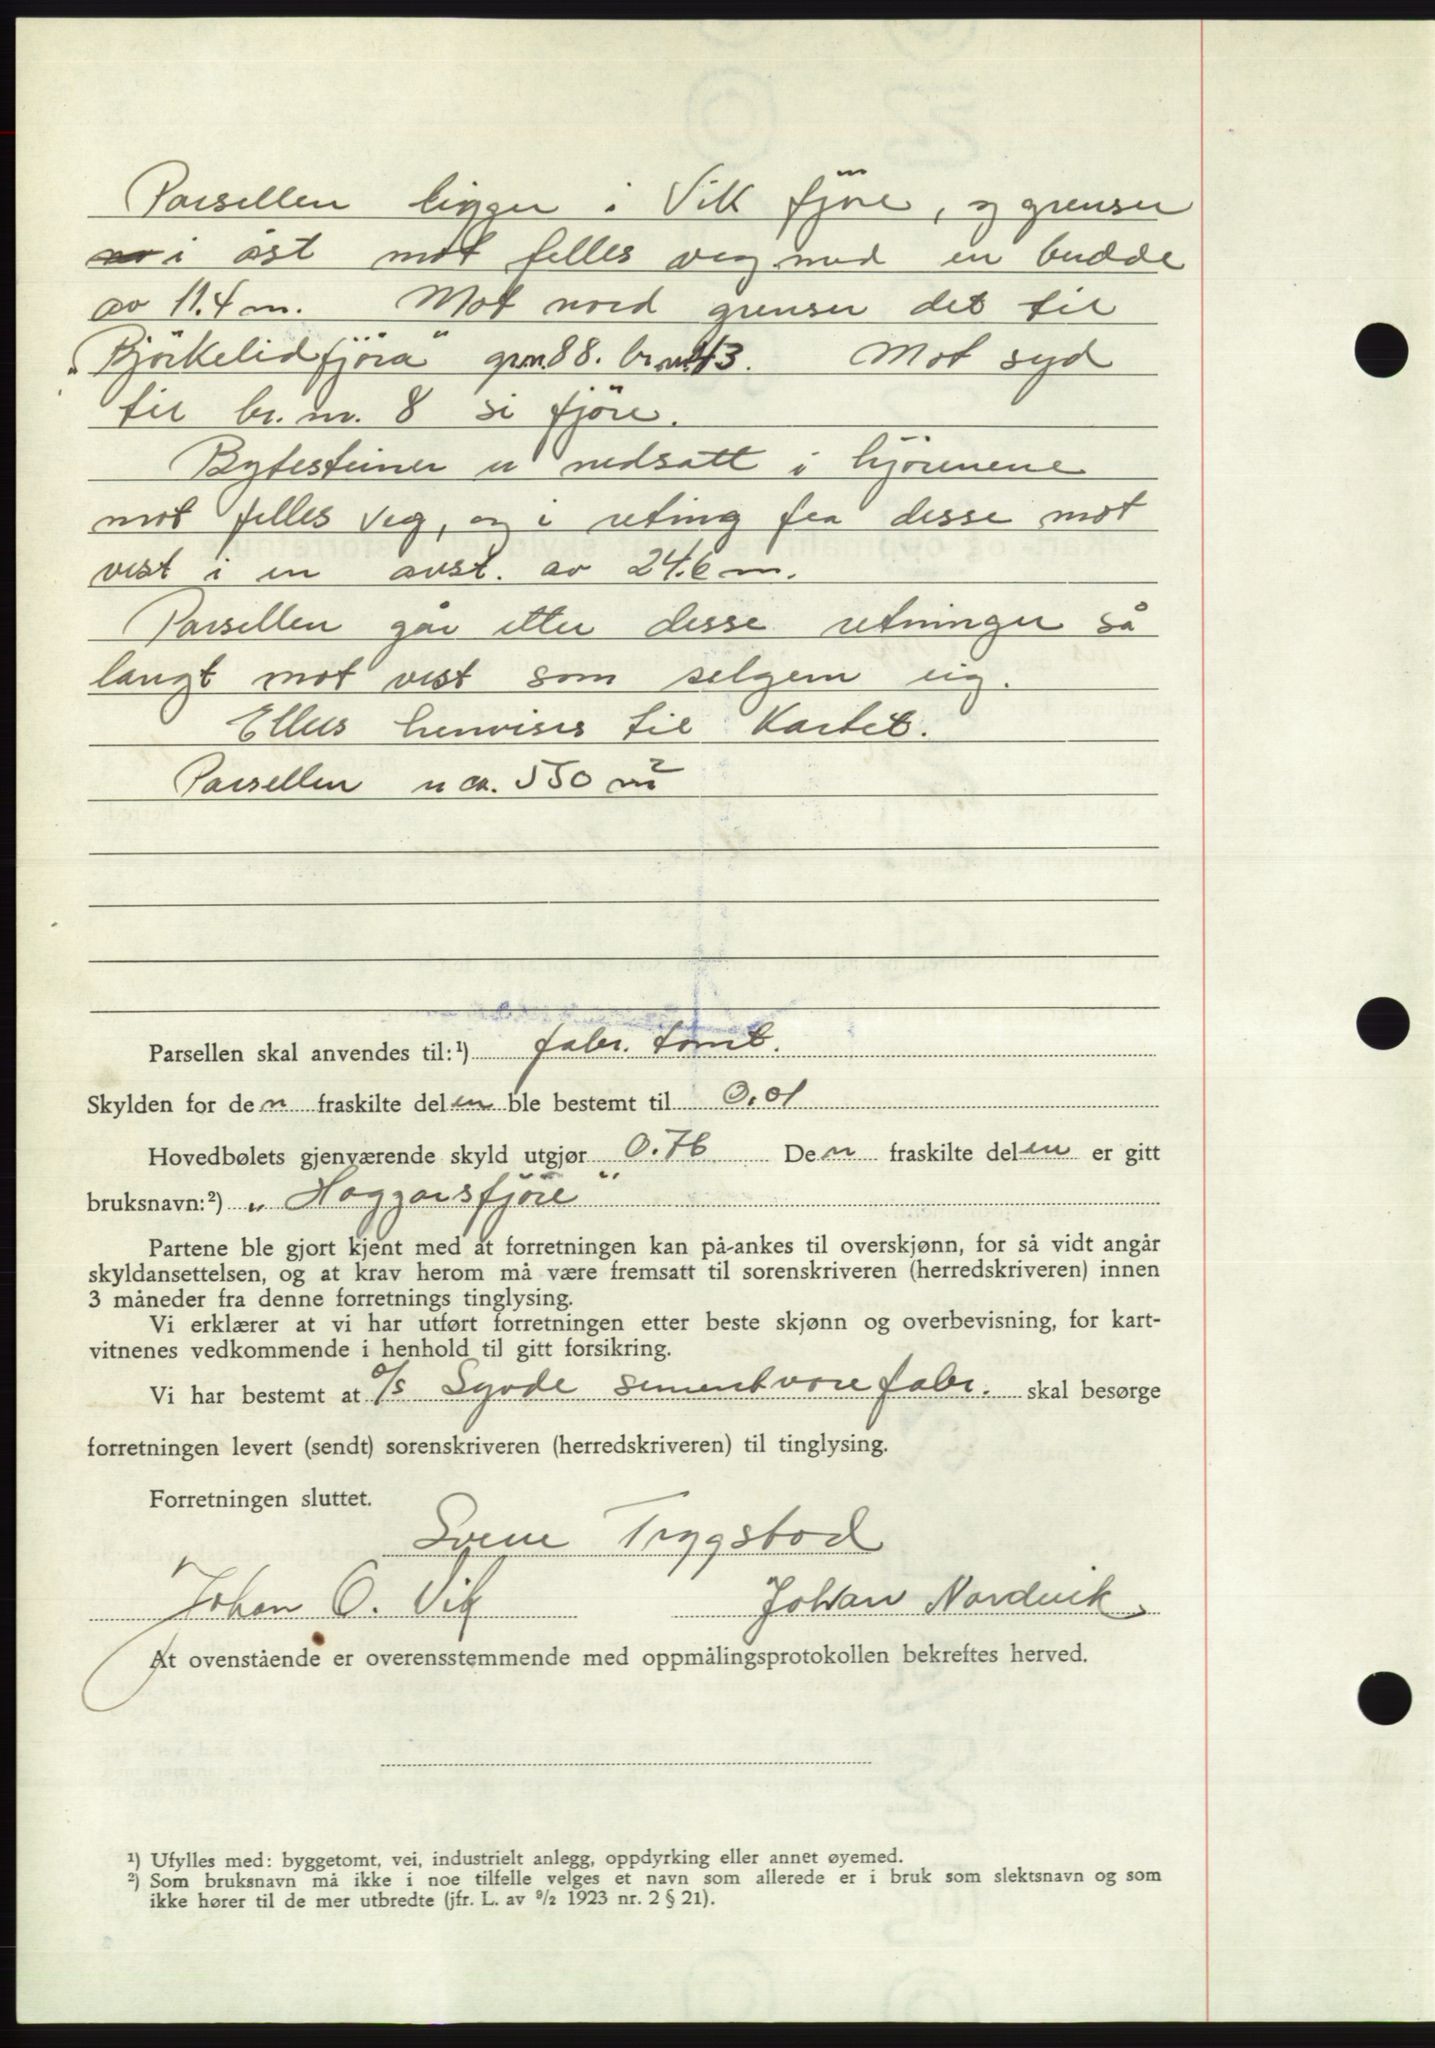 Parsellen ligger i Vik fjöre, og grenser
i öst mot felles veg med en bredde
av 11.4 m. Mot nord grenser det til
"Björkelidfjöra" gr.nr. 88. br.nr. 43. Mot syd
til br. nr. 8 si fjöre.
Bytesteiner er nedsatt i hjörnene
mot felles veg, og i retning fra disse mot
vest i en avst. av 24.6 m.
Parsellen går etter disse retninger så
langt mot vest som selgern eig.
Ellers henvises til Kartet.
Parsellen er ca. 550 m²
Parsellen skal anvendes til:¹) fabr. tomt.
Skylden for den fraskilte delen ble bestemt til 0,01
Hovedbølets gjenværende skyld utgjør 0.76 Den fraskilte delen er gitt
bruksnavn:²) "Haggarsfjöre"
Partene ble gjort kjent med at forretningen kan på-ankes til overskjønn, for så vidt angår
skyldansettelsen, og at krav herom må være fremsatt til sorenskriveren (herredskriveren) innen
3 måneder fra denne forretnings tinglysing.
Vi erklærer at vi har utført forretningen etter beste skjønn og overbevisning, for kart-
vitnenes vedkommende i henhold til gitt forsikring.
Vi har bestemt at a/s Syvde sementvarefabr. skal besørge
forretningen levert (sendt) sorenskriveren (herredskriveren) til tinglysing.
Forretningen sluttet.
Sverre Trygstad
Johan O. Vik Johan Nordvik
At ovenstående er overensstemmende med oppmålingsprotokollen bekreftes herved.
¹) Ufylles med: byggetomt, vei, industrielt anlegg, oppdyrking eller annet øyemed.
²) Som bruksnavn må ikke i noe tilfelle velges et navn som allerede er i bruk som slektsnavn og som
ikke hører til de mer utbredte (jfr. L. av ⁹/₂ 1923 nr. 2 § 21).